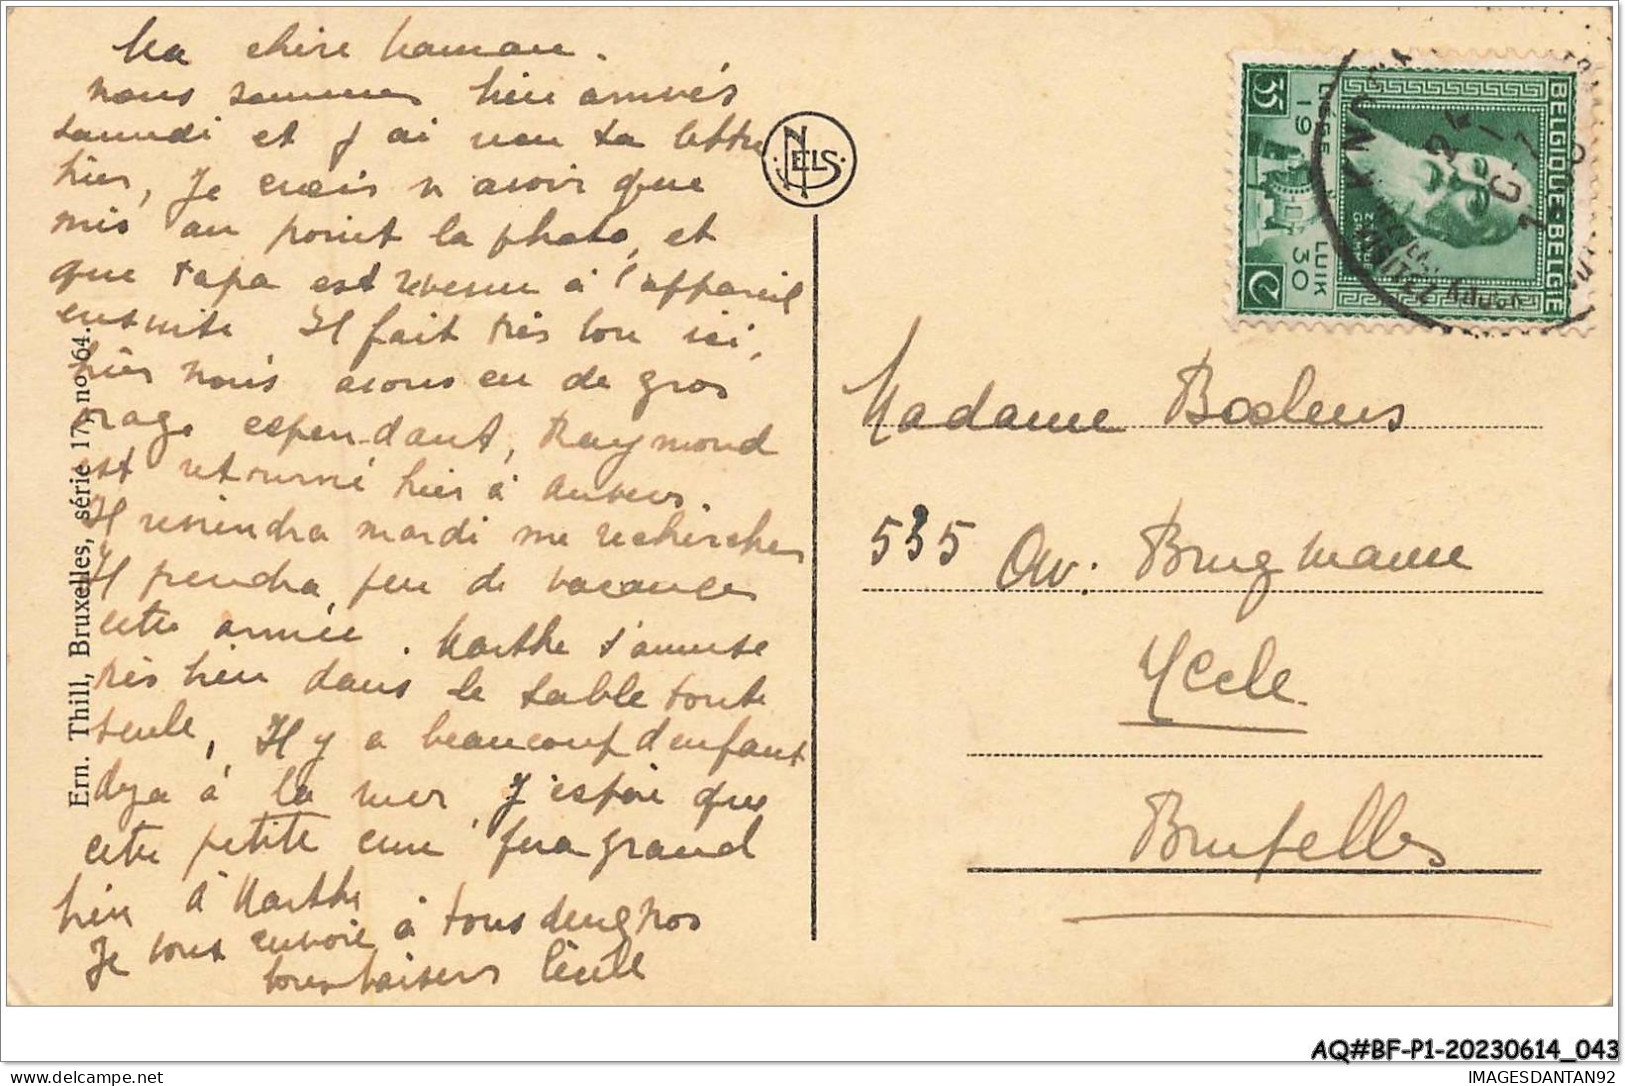 Ma chère Maman.
nous sommes bien arrivés
samedi et j'ai reçu ta lettre
hier, Je crois n'avoir que
mis au point la photo, et
que Papa est revenu à l'appareil
ensuite Il fait très bon ici,
hier nous avons eu de gros
orage cependant, Raymond
est retourné hier à Anvers.
Il reviendra mardi me rechercher
Il prendra peu de vacances
cette année. Marthe s'amuse
très bien dans le sable toute
seule, Il y a beaucoup d'enfant
deja à la mer, J'espère que
cette petite cure fera grand
bien à Marthe
Je vous envoie à tous deux gros
bons baisers Cécile
Ern. Thill, Bruxelles, série 17, no 64.
NELS
BELGIQUE-BELGIË
35 C
LIÈGE 19
LUIK 30
Madame Boelens
535 Av. Brugmann
Uccle
Bruxelles
AQ#BF-P1-20230614_043
delcampe.net
IMAGESDANTAN92